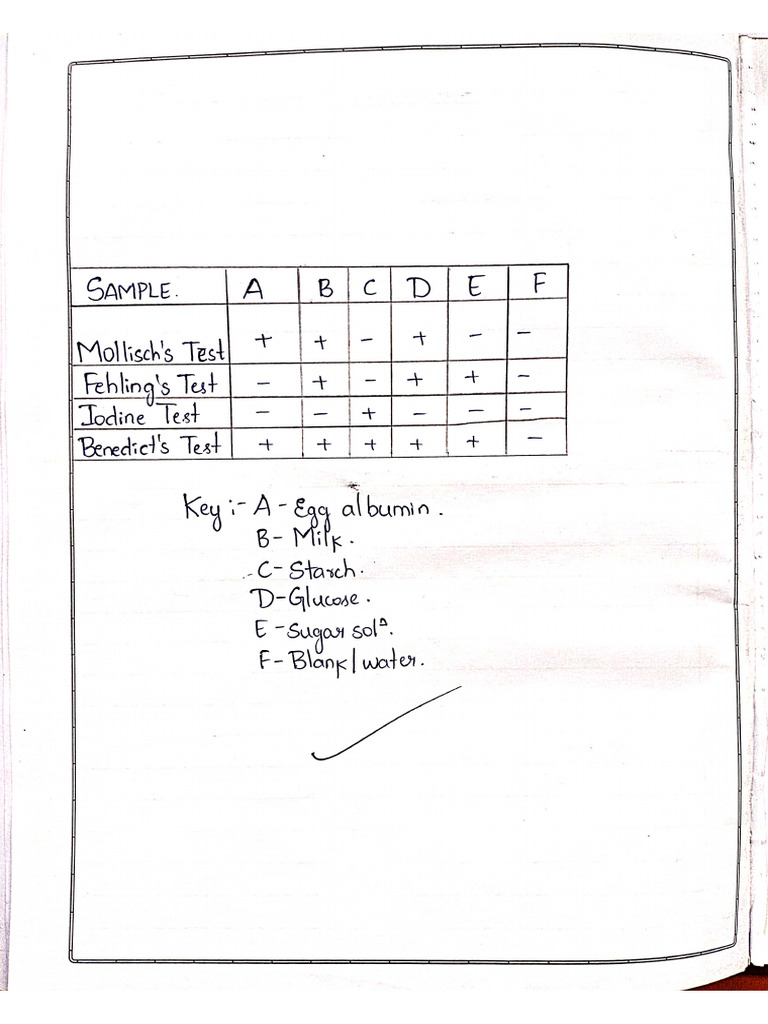 SAMPLE. A B C D E F
Mollisch's Test + + - + - -
Fehling's Test - + - + + -
Iodine Test - - + - - -
Benedict's Test + + + + + -
Key :- A - Egg albumin.
B - Milk.
C - Starch.
D - Glucose.
E - Sugar solⁿ.
F - Blank/water.